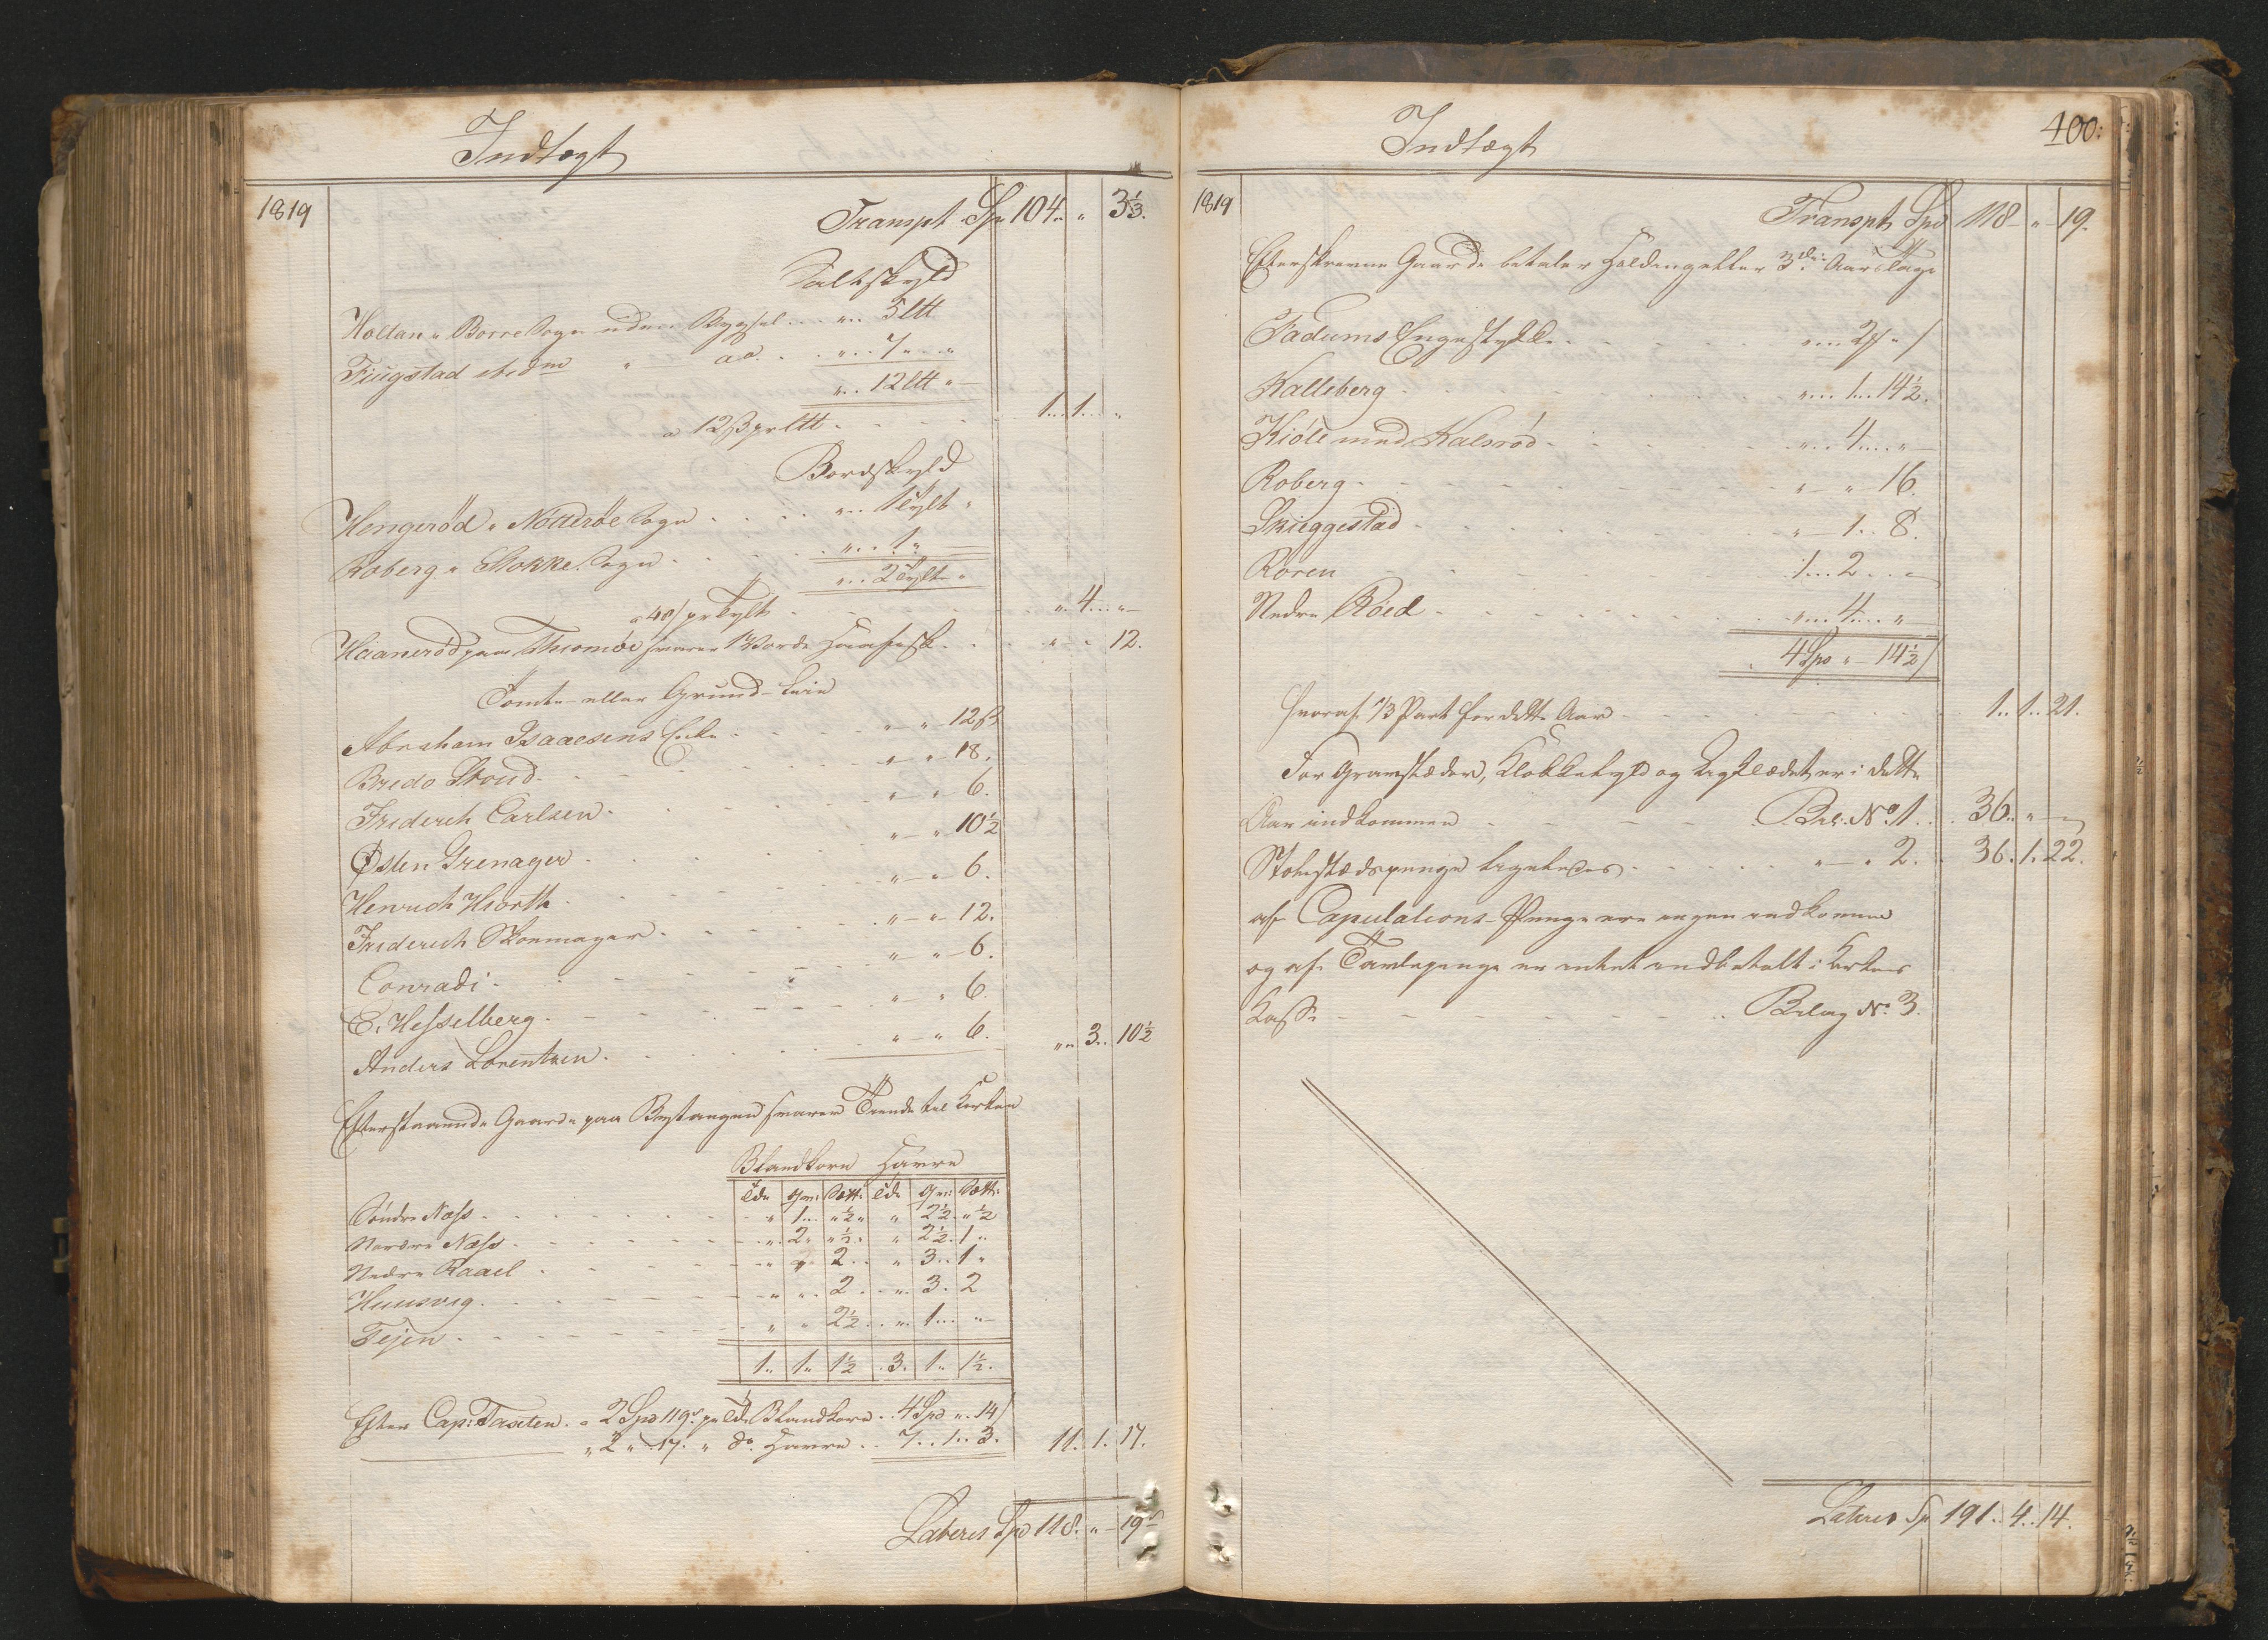 Indtægt
1819
Transpt Sp 104 " 3 1/3.
Saltskyld
Holtan i Borre Sogn uden Bygsel ... " .. 5 Ltt
Fiugstad ibidm " ao. .. " .. 7 "
" .. 12 Ltt "
a 12 ß pr Ltt . . . 1. 1. "
Bordskyld
Hengerød i Nøtterøe Sogn . . . " .. 1 Tylt "
Roberg i Stokke Sogn . . . " .. 1 "
" .. 2 Tylt "
a 48 / pr Tylt . . . " 4 .. "
Haanerød paa Thiomøe svarer 1 Vorde Haafisk . . " " 12.
Tomte- eller Grund-Leie
Abraham Isaacsens Enke . . . " " 12 ß
Bredo Stoud . . . " " 18.
Friderich Carlsen . . . " " 6.
Østen Grenager . . . " " 10 1/2
Henrich Hiorth . . . " " 6.
Friderich Skoemager . . . " " 12.
Conradi . . . " " 6.
C. Hesselberg . . . " " 6.
Anders Lorentzen . . . " " 6. " 3. 10 1/2
Efterstaaende Gaarde paa Bystangen svarer Tiende til Kirken
Blandkorn Havre
Tde Qr: Sætt: Tde Qr: Sætt:
Søndre Næss . . . " 1 " 1/2 " 2 1/2 " 1/2
Nordre Næss . . . " 2 " 1/2 " 2 1/2 1 "
Nedre Raael . . . " " 2 " 3 1 "
Huusvig . . . " " 2 " 3. 2
Tejen . . . " " 2 1/2 " 1 "
1 " 1 " 1 1/2 3. 1 " 1 1/2.
Efter Cap: Taxten a 2 Spd 119 s pr Tde Blandkorn . 4 Spd " 14 /
" 2 " 17. " do Havre . . 7. 1. 3. 11. 1. 17.
Lateris Spd 118. " 19 s
Indtægt
400:
1819
Transpt Spd 118 " 19.
Efterskrevne Gaarde betaler Holding hver 3die Aars Tage
Fadums Engestykke . . . " 2 " /
Kalleberg . . . " 1. 14 1/2.
Kiøle med Kalsrød . . . " 4 "
Roberg . . . " " 16.
Skieggestad . . . " 1. 8.
Roren . . . 1. 2 . "
Nedre Røed . . . " 4 "
4 Spd " 14 1/2 /
hvoraf 1/3 Part for dette Aar . . . 1. 1. 21.
For Gravstæder, Klokkelyd og Ligklædet er i dette
Aar indkommen . . . Bil. No. 1. 36. " "
Stolestædspenge ligeledes . . . " " 2. 36. 1. 22.
af Copulations-Penge ere ingen indkomne
og af Tavlepenge er intet indbetalt i Kirkens
Kasse . . . Bilag No. 3.
Lateris Sp 191. 4. 14.